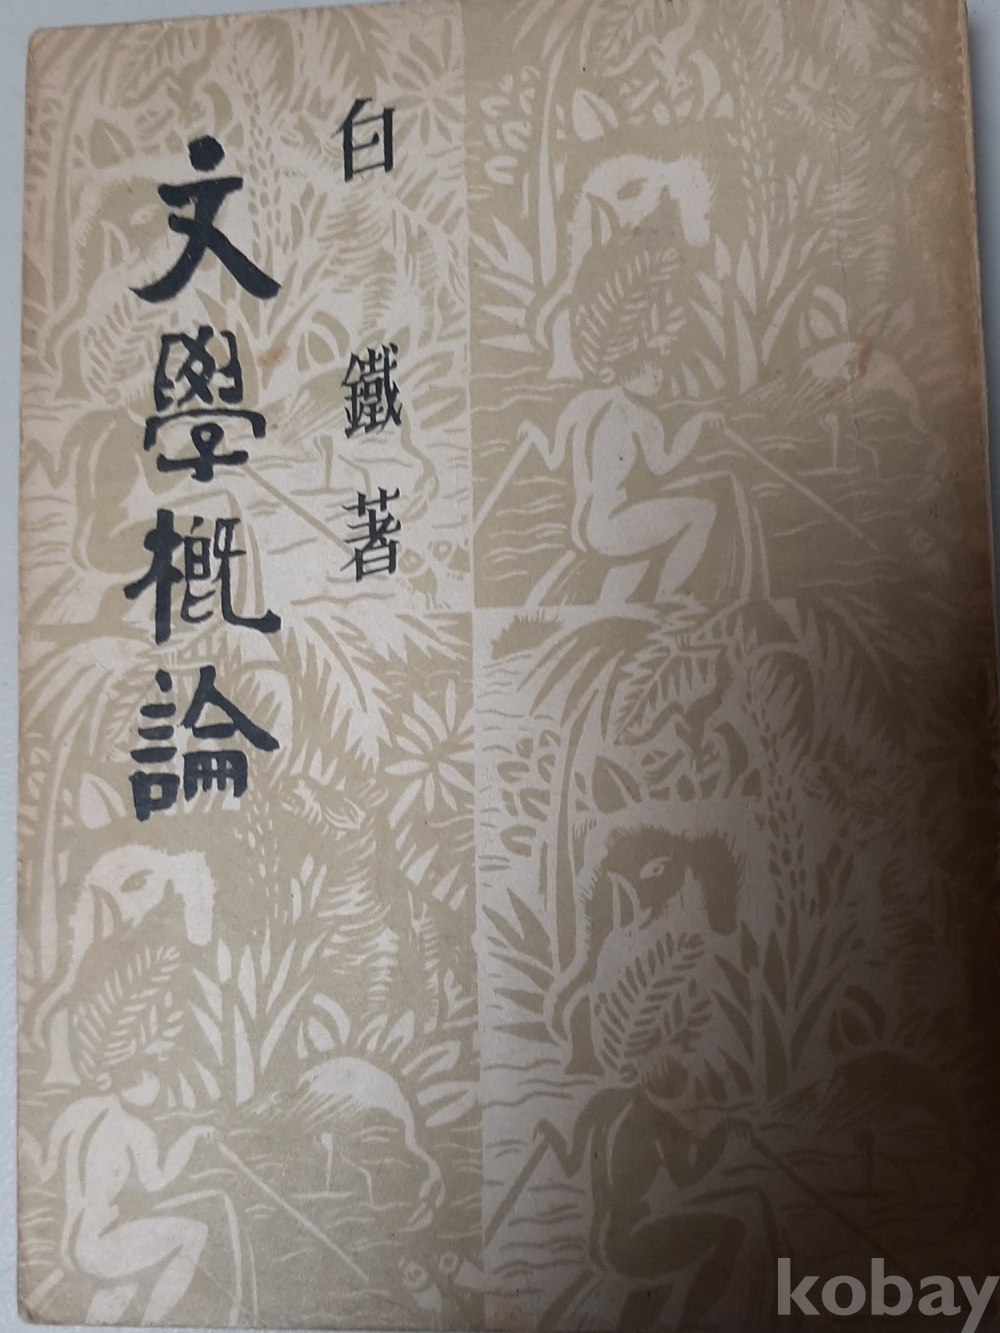 白鐵著
文學槪論
kobay